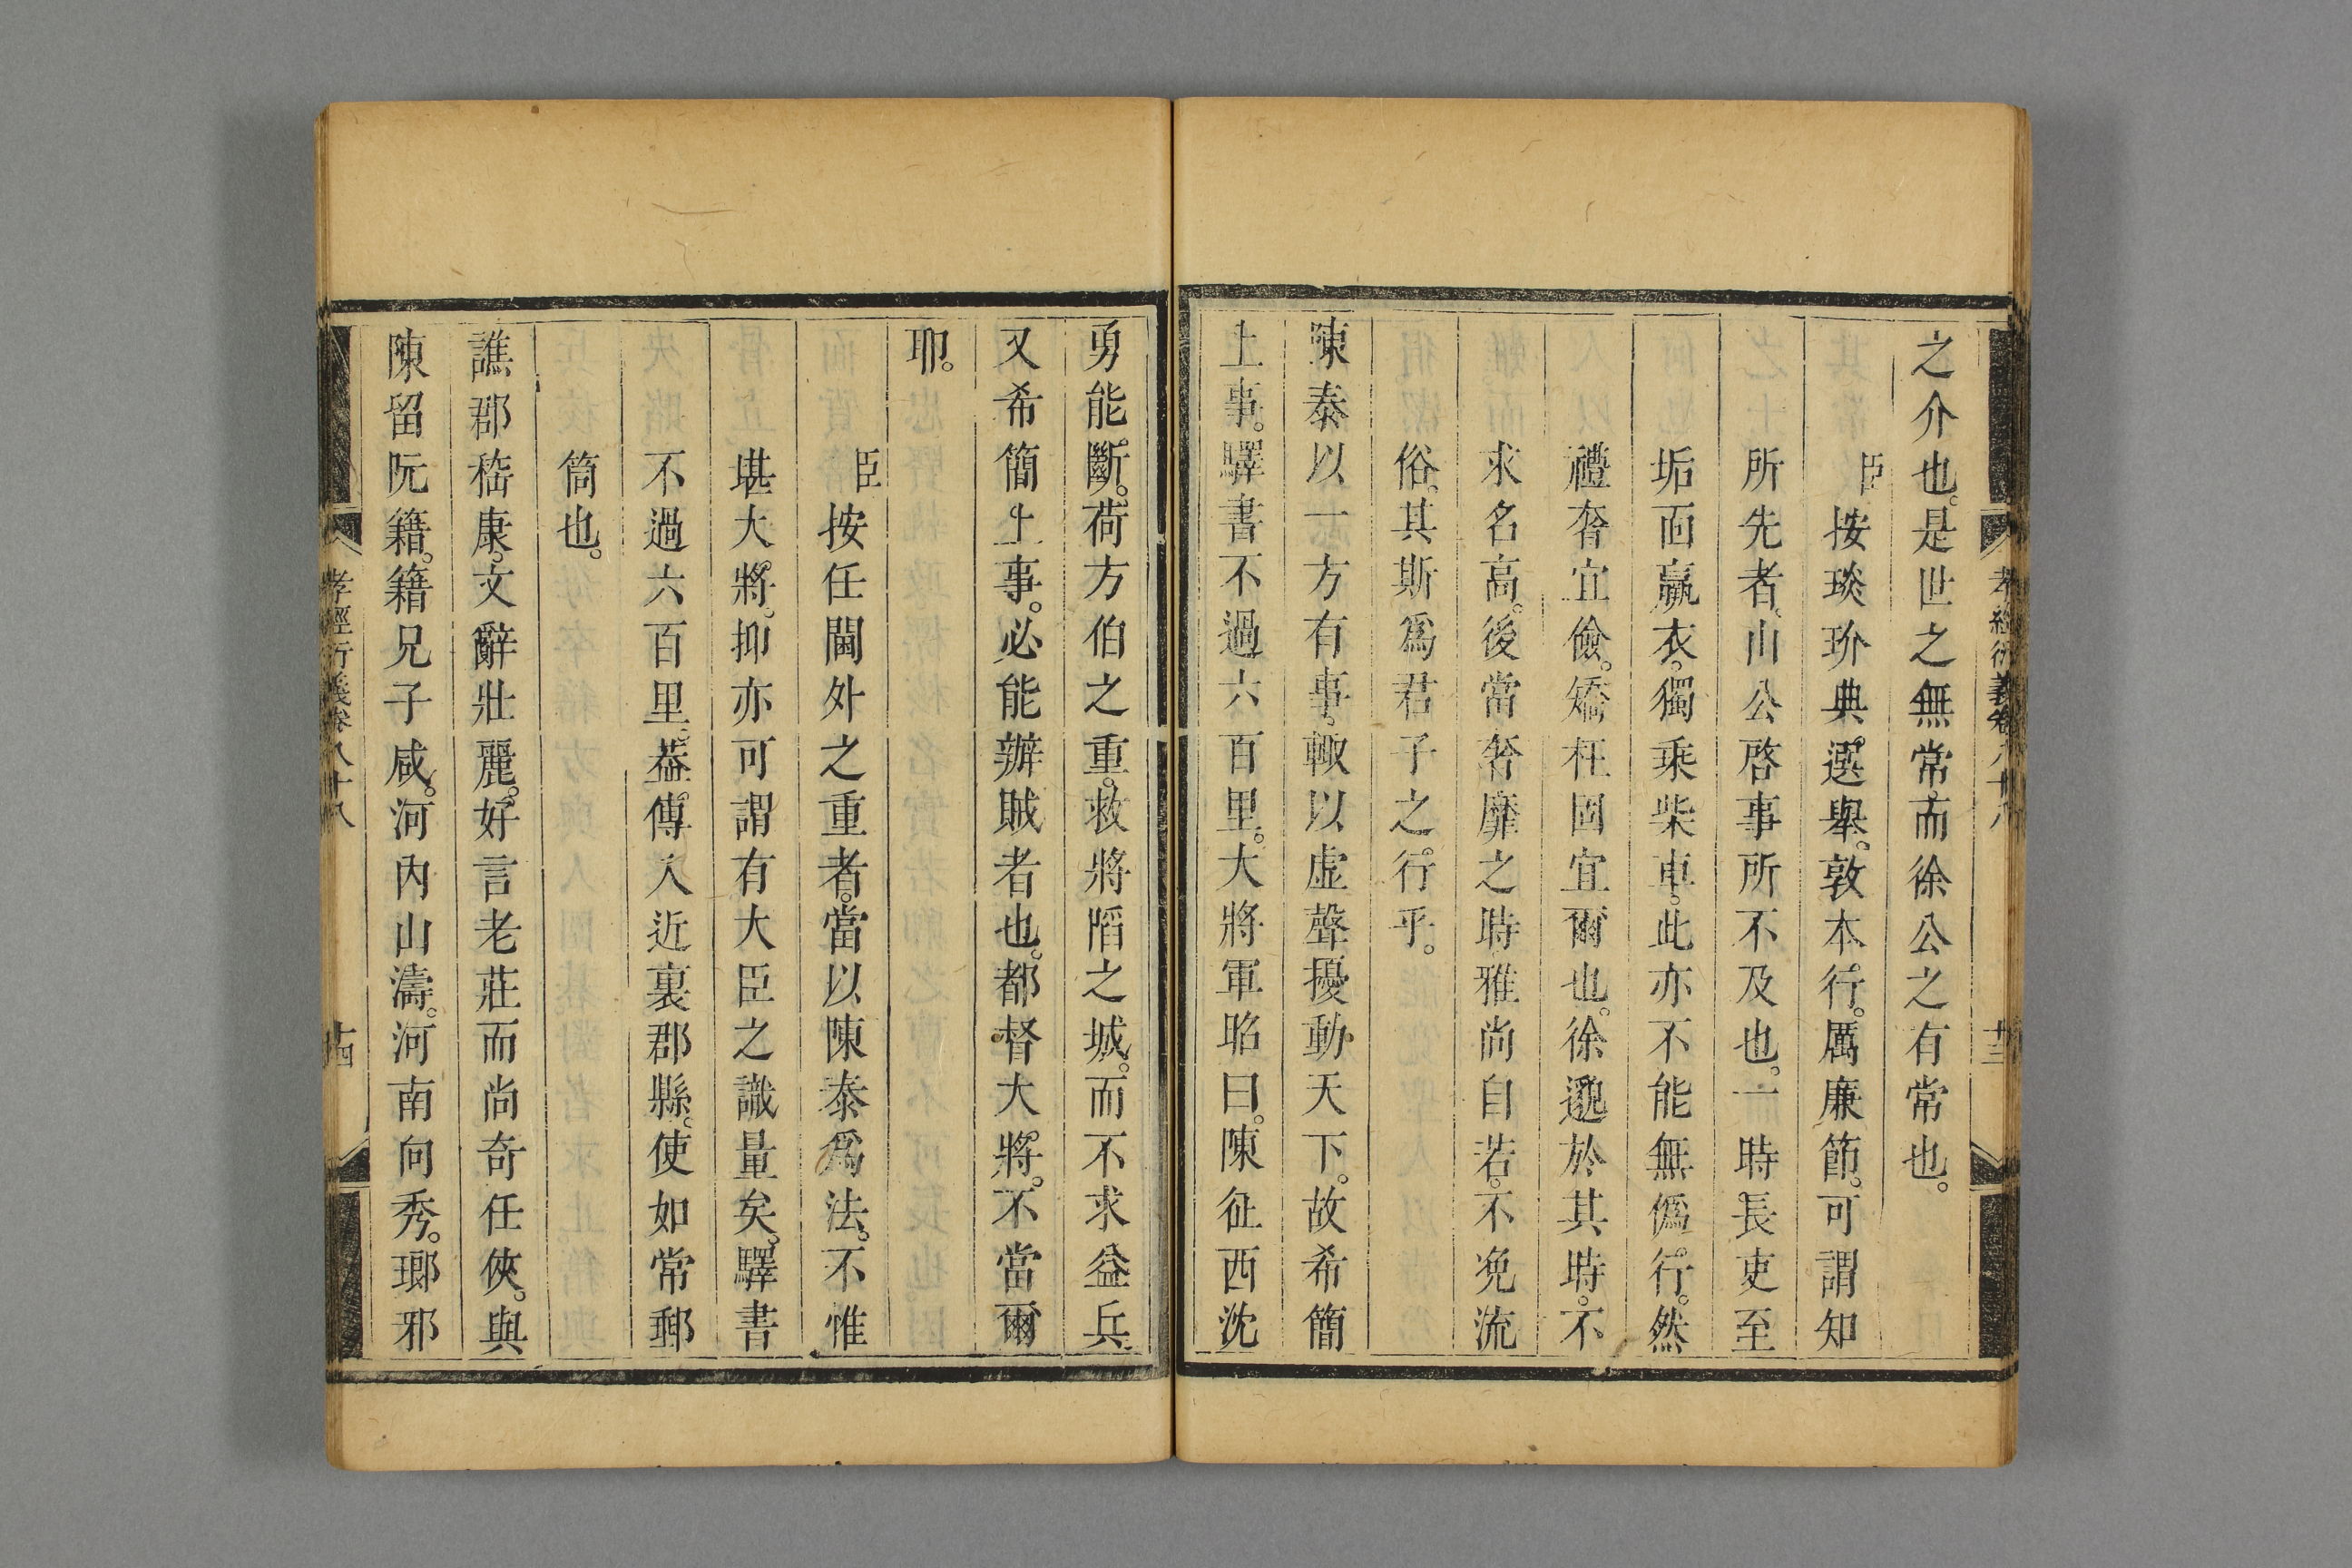 孝經衍義卷八十八
廿三
之介也。是世之無常。而徐公之有常也。
臣按琰玠典選舉。敦本行。厲廉節。可謂知
所先者。山公啓事所不及也。一時長吏至
垢面羸衣。獨乘柴車。此亦不能無僞行。然
禮奢宜儉。矯枉固宜爾也。徐邈於其時。不
求名高。後當奢靡之時雅尚自若。不免流
俗。其斯爲君子之行乎。
陳泰以一方有事。輙以虛聲擾動天下。故希簡
上事。驛書不過六百里。大將軍昭曰。陳征西沈
勇能斷。荷方伯之重。救將䧟之城。而不求益兵
又希簡上事。必能辦賊者也。都督大將。不當爾
耶。
臣按任閫外之重者。當以陳泰爲法。不惟
堪大將。抑亦可謂有大臣之識量矣。驛書
不過六百里。葢傳入近裏郡縣。使如常郵
筒也。
譙郡嵇康。文辭壯麗。好言老莊而尚奇任俠。與
陳留阮籍。籍兄子咸。河內山濤。河南向秀。瑯邪
孝經衍義卷八十八
廿四